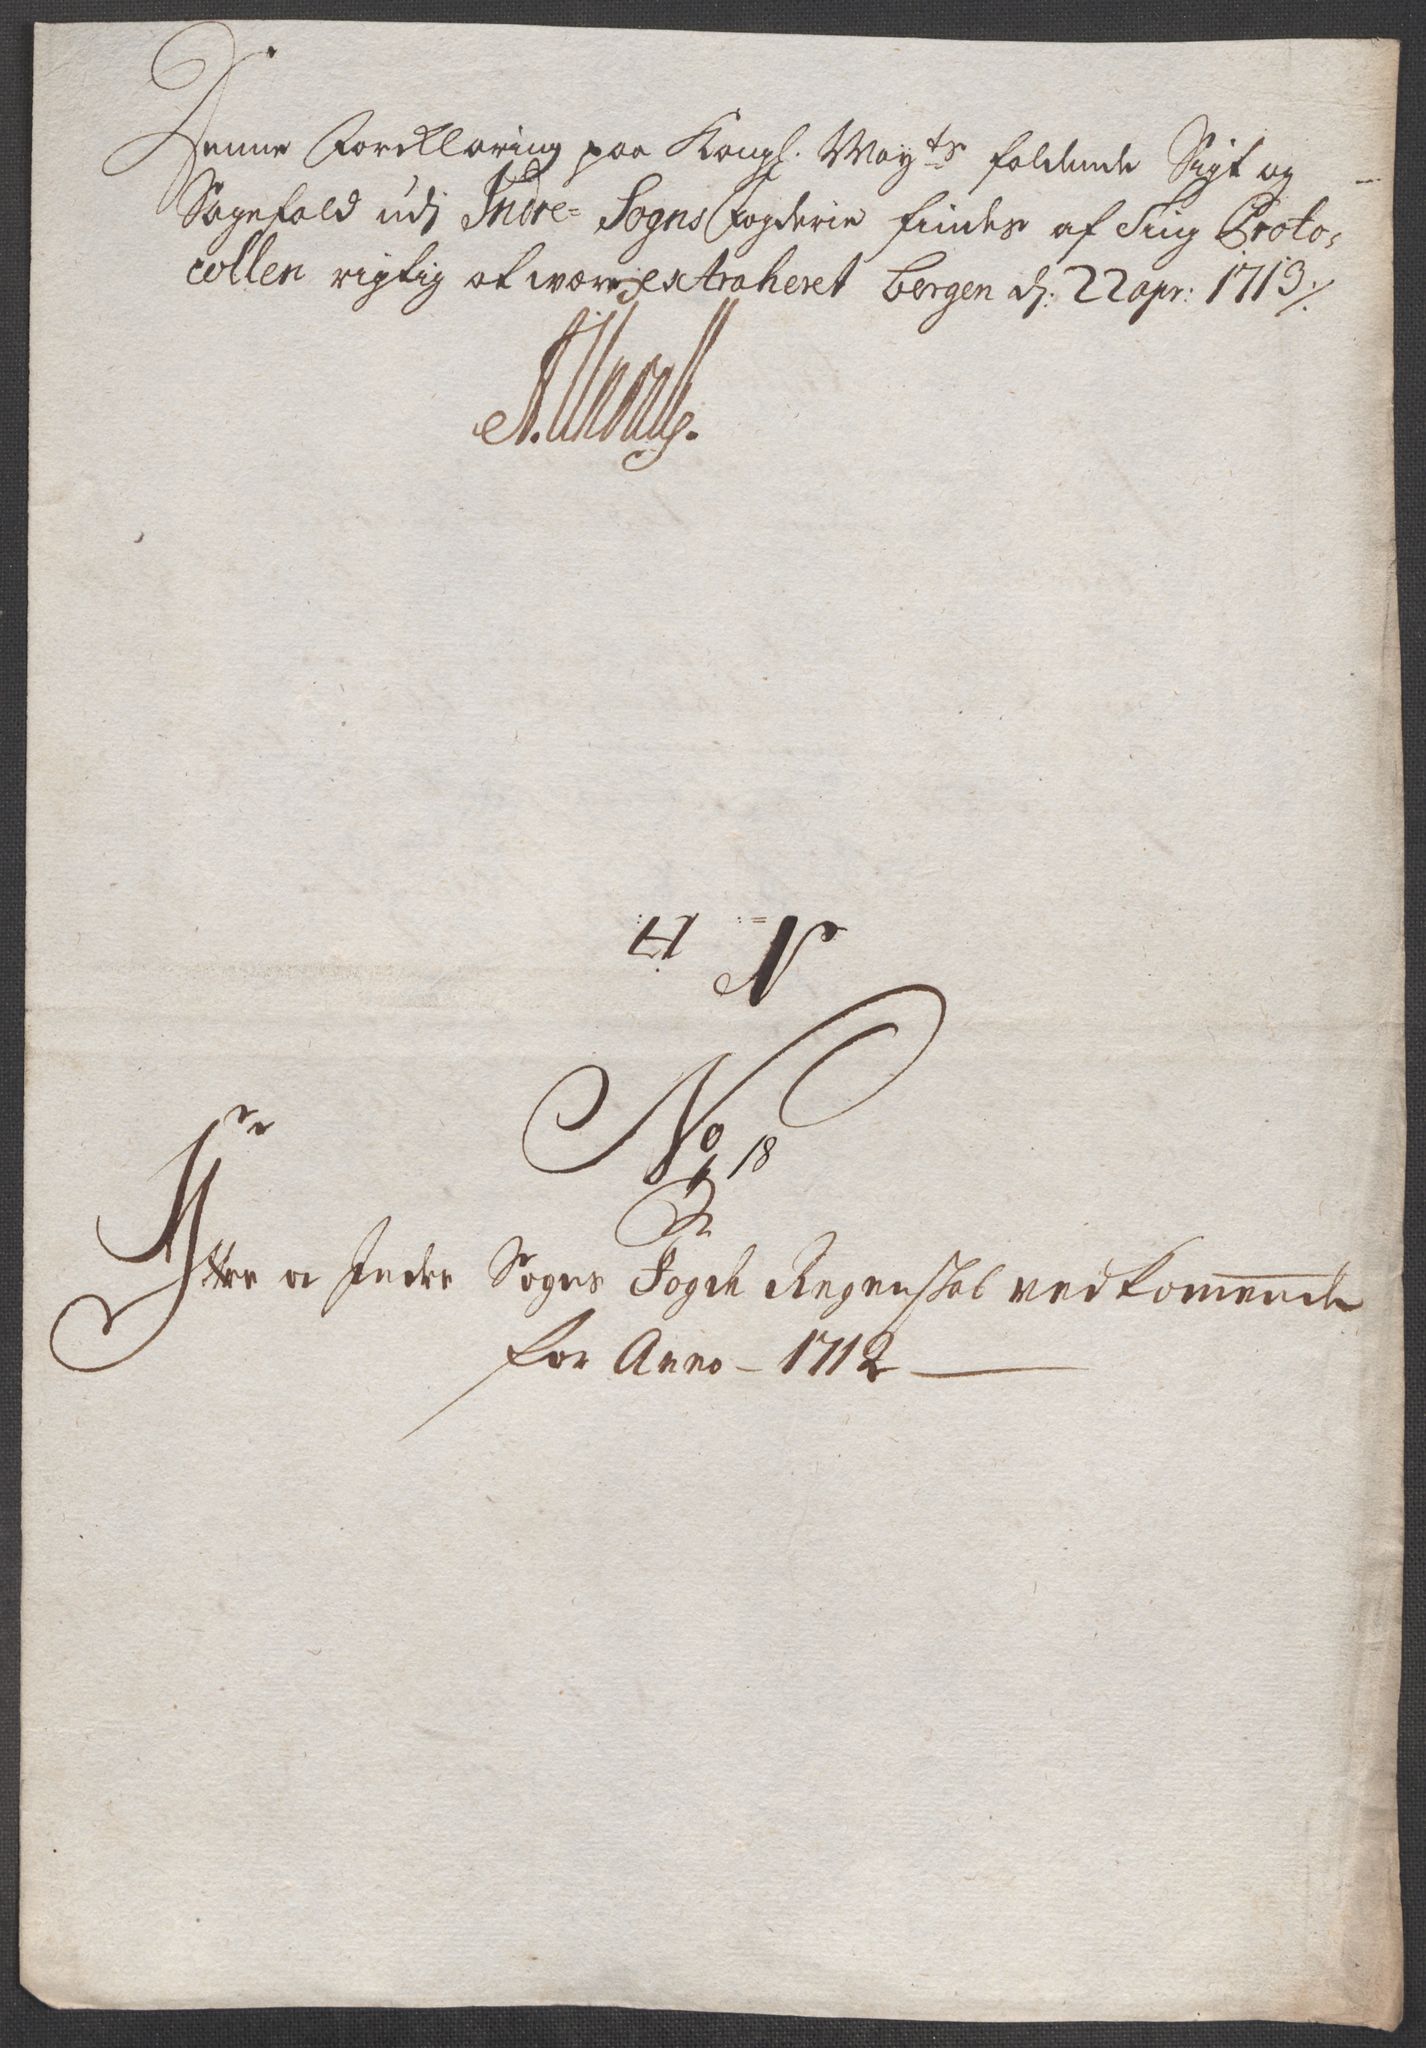 Denne Forcklaring paa Kongl. Mayts faldende Sigt og
Sagefald udj Indre= Sogns Fogderie findes af Ting Proto=
collen rigtig at være extraheret Bergen dj: 22 apr: 1713 /.
No 18
Yttre og Indre Sogns Fogde Regenskab vedkomende
for Anno - 1712